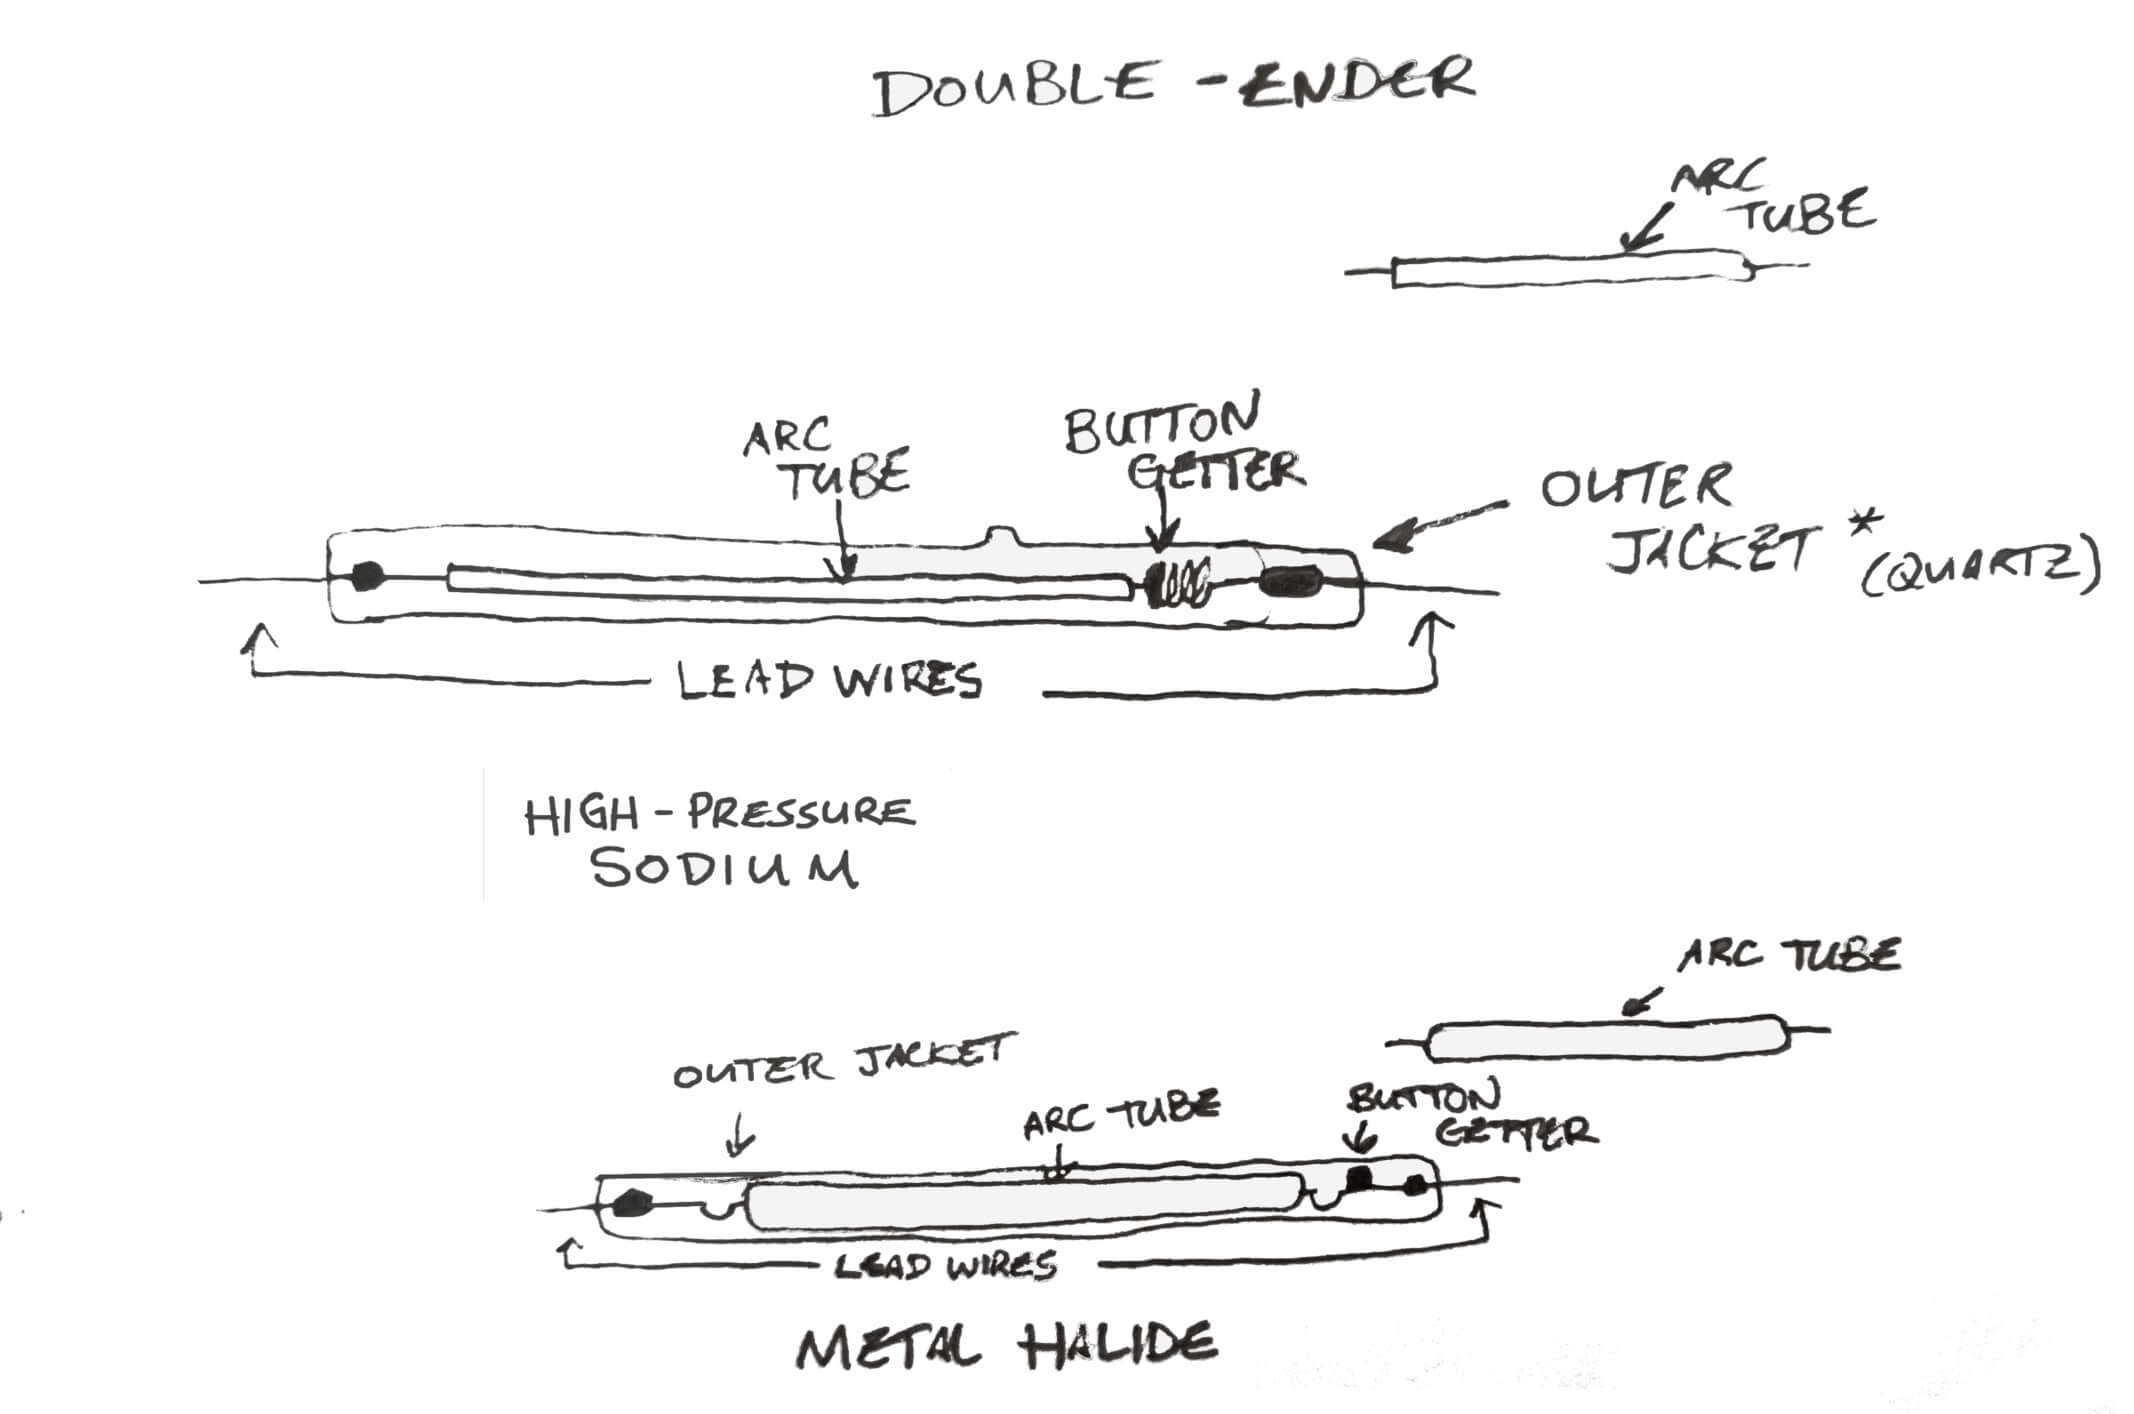 DOUBLE-ENDER
ARC
TUBE
ARC
TUBE
BUTTON
GETTER
OUTER
JACKET*
(QUARTZ)
LEAD WIRES
HIGH-PRESSURE
SODIUM
ARC TUBE
OUTER JACKET
ARC TUBE
BUTTON
GETTER
LEAD WIRES
METAL HALIDE